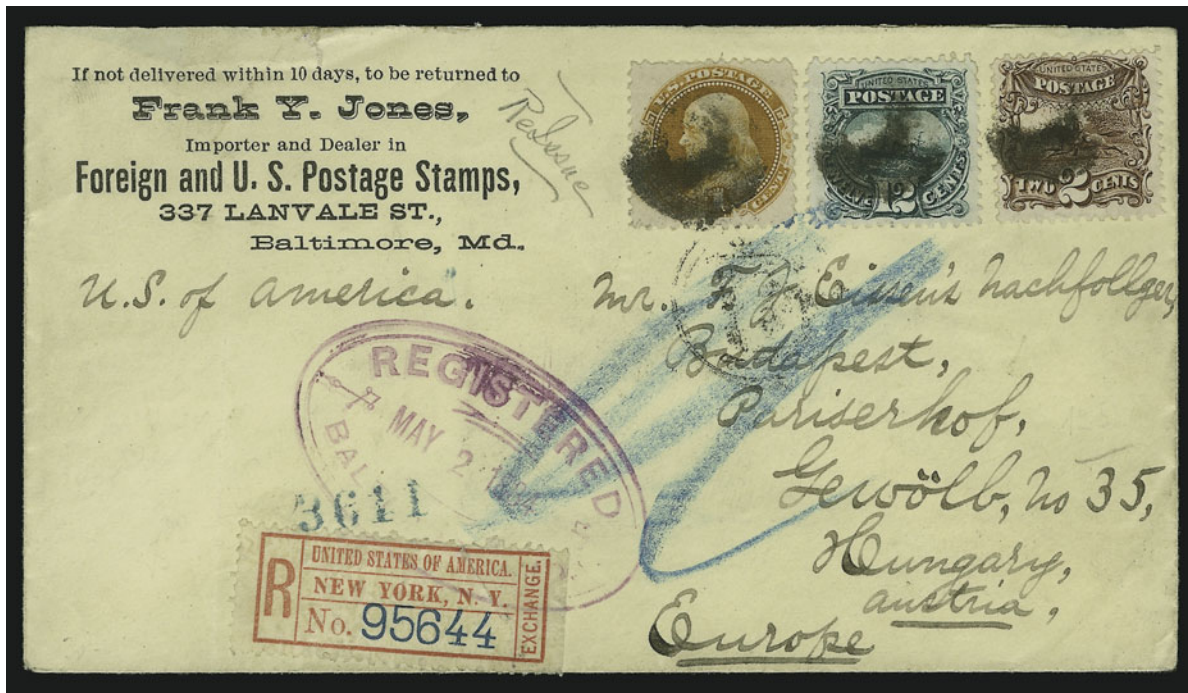 If not delivered within 10 days, to be returned to
Frank Y. Jones,
Importer and Dealer in
Foreign and U. S. Postage Stamps,
337 LANVALE ST.,
Baltimore, Md.
ReIssue
U.S. POSTAGE
CENT
UNITED STATES
POSTAGE
TWELVE 12 CENTS
UNITED STATES
POSTAGE
TWO 2 CENTS
U.S. of America.
Mr. F. J. Nachfollger,
Budapest,
Pariserhof,
Gewölb, No 35,
Hungary,
Austria,
Europe
REGISTERED
MAY 2
BAL
3611
R
UNITED STATES OF AMERICA.
NEW YORK, N. Y.
No. 95644
EXCHANGE.